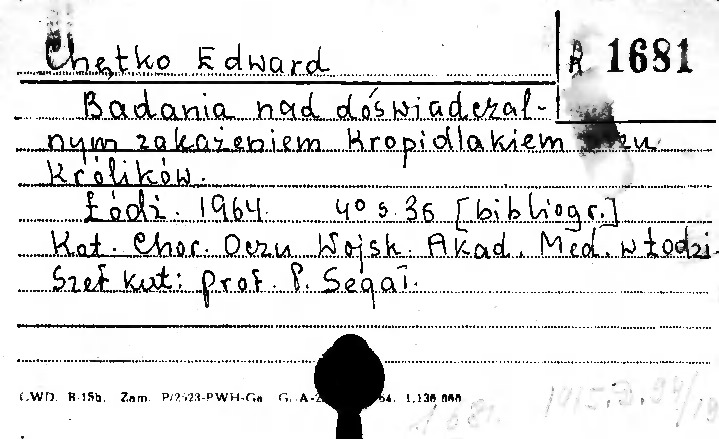 Chętko Edward
R 1681
Badania nad doświadczal-
nym zakażeniem Kropidlakiem oczu
Królików.
Łódź. 1964. 4° s. 36 [bibliogr.]
Kat. Chor. Oczu Wojsk. Akad. Med. w Łodzi.
Szef kat: prof. P. Segał.
CWD. R-15b. Zam. P/2523-PWH-Ga
1681.